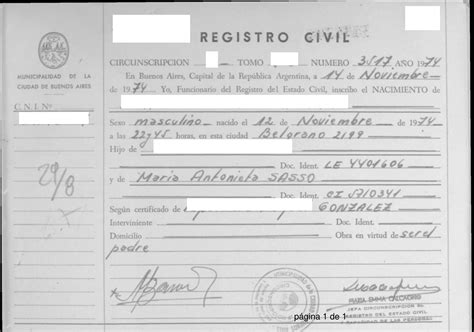 REGISTRO CIVIL
MUNICIPALIDAD DE LA
CIUDAD DE BUENOS AIRES
C. N. I. Nº
CIRCUNSCRIPCION TOMO NUMERO 3517 AÑO 1974
En Buenos Aires, Capital de la República Argentina, a 14 de Noviembre
de 1974 Yo, Funcionario del Registro del Estado Civil, inscribo el NACIMIENTO de
Sexo masculino nacido el 12 de Noviembre de 1974
a las 22 y 45 horas, en esta ciudad Belgrano 2199
Hijo de
Doc. Ident. LE 4401606
y de Maria Antonieta SASSO
Doc. Ident. CI
29/8
Según certificado de GONZALEZ
Interviniente Doc. Ident.
Domicilio Obra en virtud de ser el
padre
MUNICIPALIDAD
página 1 de 1
MARIA EMMA
JEFA CIRCUNSCRIPCION
REGISTRO DEL ESTADO CIVIL
DE LAS PERSONAS